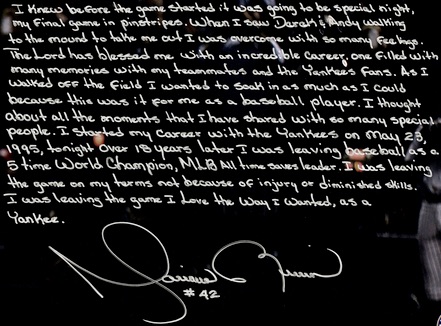 I Knew before the game started it was going to be special night,
my final game in pinstripes. When I saw Derek & Andy walking
to the mound to take me out I was overcome with so many feelings.
The Lord has blessed me with an incredible career, one filled with
many memories with my teammates and the Yankees fans. As I
walked off the field I wanted to soak in as much as I could
because this was it for me as a baseball player. I thought
about all the moments that I have shared with so many special
people. I started my career with the Yankees on May 23,
1995, tonight over 18 years later I was leaving baseball as a
5 time World Champion, MLB All time saves leader. I was leaving
the game on my terms not because of injury or diminished skills.
I was leaving the game I love the way I wanted, as a
Yankee.
Mariano Rivera
# 42